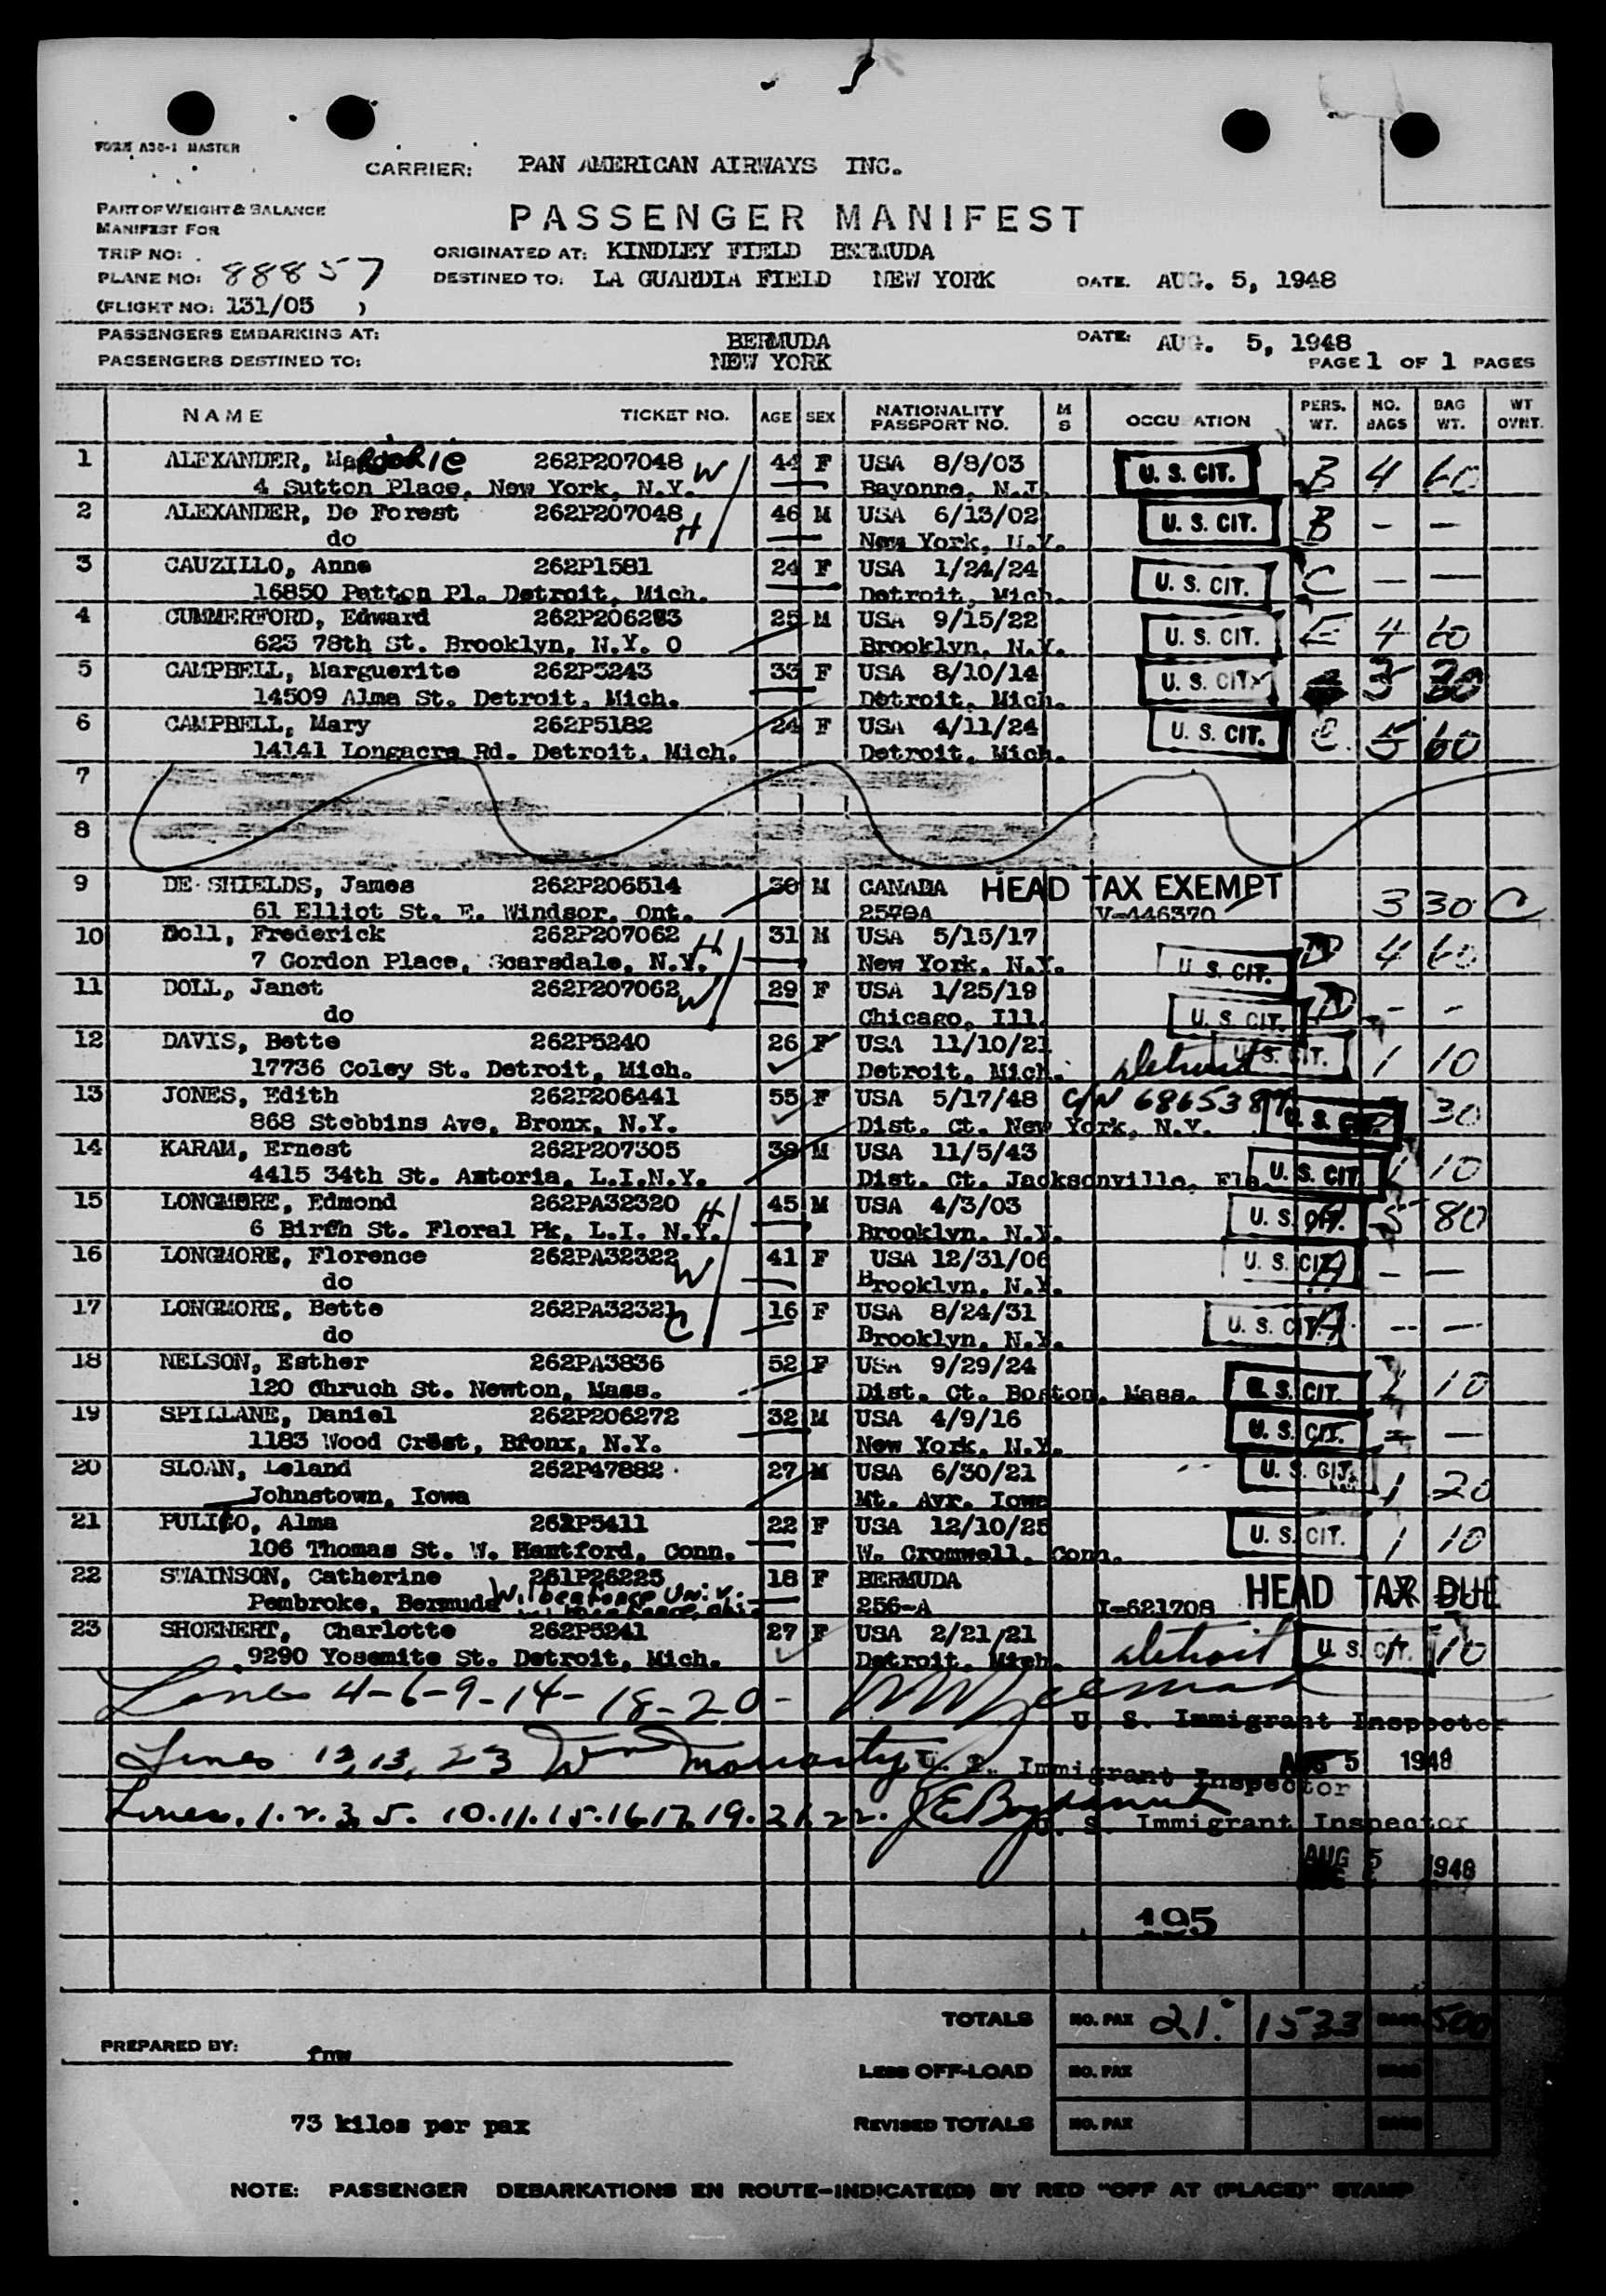 FORM A30-1 MASTER
CARRIER: PAN AMERICAN AIRWAYS INC.
PART OF WEIGHT & BALANCE
MANIFEST FOR
PASSENGER MANIFEST
TRIP NO:
ORIGINATED AT: KINDLEY FIELD BERMUDA
PLANE NO: 88857
DESTINED TO: LA GUARDIA FIELD NEW YORK DATE. AUG. 5, 1948
(FLIGHT NO: 131/05 )
PASSENGERS EMBARKING AT: BERMUDA DATE: AUG. 5, 1948
PASSENGERS DESTINED TO: NEW YORK PAGE 1 OF 1 PAGES
NAME TICKET NO. AGE SEX NATIONALITY PASSPORT NO. M S OCCU ATION PERS. WT. NO. BAGS BAG WT. WT OVNT.
1 ALEXANDER, Marjorie 262P207048 W 44 F USA 8/8/03 U. S. CIT. B 4 60
4 Sutton Place, New York, N.Y. Bayonne, N.J.
2 ALEXANDER, De Forest 262P207048 H 46 M USA 6/13/02 U. S. CIT. B - -
do New York, N.Y.
3 CAUZILLO, Anne 262P1581 24 F USA 1/24/24 U. S. CIT. C - -
16850 Patton Pl. Detroit, Mich. Detroit, Mich.
4 CUMMERFORD, Edward 262P206283 25 M USA 9/15/22 U. S. CIT. E 4 60
623 78th St. Brooklyn, N.Y. O Brooklyn, N.Y.
5 CAMPBELL, Marguerite 262P3243 33 F USA 8/10/14 U. S. CIT.
14509 Alma St. Detroit, Mich. Detroit, Mich.
6 CAMPBELL, Mary 262P5182 24 F USA 4/11/24 U. S. CIT. C. 5 60
14141 Longacre Rd. Detroit, Mich. Detroit, Mich.
7
8
9 DE SHIELDS, James 262P206514 30 M CANADA HEAD TAX EXEMPT 3 30 C
61 Elliot St. E. Windsor, Ont. 2579A V-446370
10 Doll, Frederick 262P207062 H 31 M USA 5/15/17 U. S. CIT. D 4 60
7 Gordon Place, Scarsdale, N.Y. New York, N.Y.
11 DOLL, Janet 262P207062 W 29 F USA 1/25/19 U. S. CIT. D - -
do Chicago, Ill.
12 DAVIS, Bette 262P5240 26 F USA 11/10/21 Detroit U. S. CIT. 1 10
17736 Coley St. Detroit, Mich. Detroit, Mich.
13 JONES, Edith 262P206441 55 F USA 5/17/48 C/N 6865387 U. S. CIT. 30
868 Stebbins Ave, Bronx, N.Y. Dist. Ct. New York, N.Y.
14 KARAM, Ernest 262P207305 38 M USA 11/5/43 U. S. CIT 1 10
4415 34th St. Astoria, L.I.N.Y. Dist. Ct. Jacksonville, Fla
15 LONGMORE, Edmond 262PA32320 H 45 M USA 4/3/03 U. S. CIT. A 5 80
6 Birch St. Floral Pk, L.I. N.Y. Brooklyn, N.Y.
16 LONGMORE, Florence 262PA32322 W 41 F USA 12/31/06 U. S. CIT. A - -
do Brooklyn, N.Y.
17 LONGMORE, Bette 262PA32321 C 16 F USA 8/24/31 U. S. CIT. A -- -
do Brooklyn, N.Y.
18 NELSON, Esther 262PA3836 52 F USA 9/29/24 U. S. CIT. 1 10
120 Chruch St. Newton, Mass. Dist. Ct. Boston, Mass.
19 SPILLANE, Daniel 262P206272 32 M USA 4/9/16 U. S. CIT. - -
1183 Wood Crest, Bronx, N.Y. New York, N.Y.
20 SLOAN, Leland 262P47882 27 M USA 6/30/21 U. S. CIT. 1 20
Johnstown, Iowa Mt. Ayr. Iowa
21 PULITO, Alma 262P5411 22 F USA 12/10/25 U. S. CIT. 1 10
106 Thomas St. W. Hartford, Conn. W. Cromwell, Conn.
22 SWAINSON, Catherine 261P26225 18 F BERMUDA HEAD TAX DUE
Pembroke, Bermuda Wilberforce Univ. 256-A I-621708
23 SHOENERT, Charlotte 262P5241 27 F USA 2/21/21 Detroit U. S. CIT. 1 10
9290 Yosemite St. Detroit, Mich. Detroit, Mich.
Lines 4-6-9-14-18-20-
U. S. Immigrant Inspector
Lines 12, 13, 23 Wm Moriarty U. S. Immigrant Inspector AUG 5 1948
Lines. 1. 2. 3, 5. 10. 11. 15. 16. 17. 19. 21. 22.
U. S. Immigrant Inspector
AUG 5 1948
195
TOTALS NO. PAX 21 1533 BAGS 500
PREPARED BY: fmw
LESS OFF-LOAD NO. PAX BAGS
73 kilos per pax REVISED TOTALS NO. PAX BAGS
NOTE: PASSENGER DEBARKATIONS EN ROUTE-INDICATE(D) BY RED "OFF AT (PLACE)" STAMP